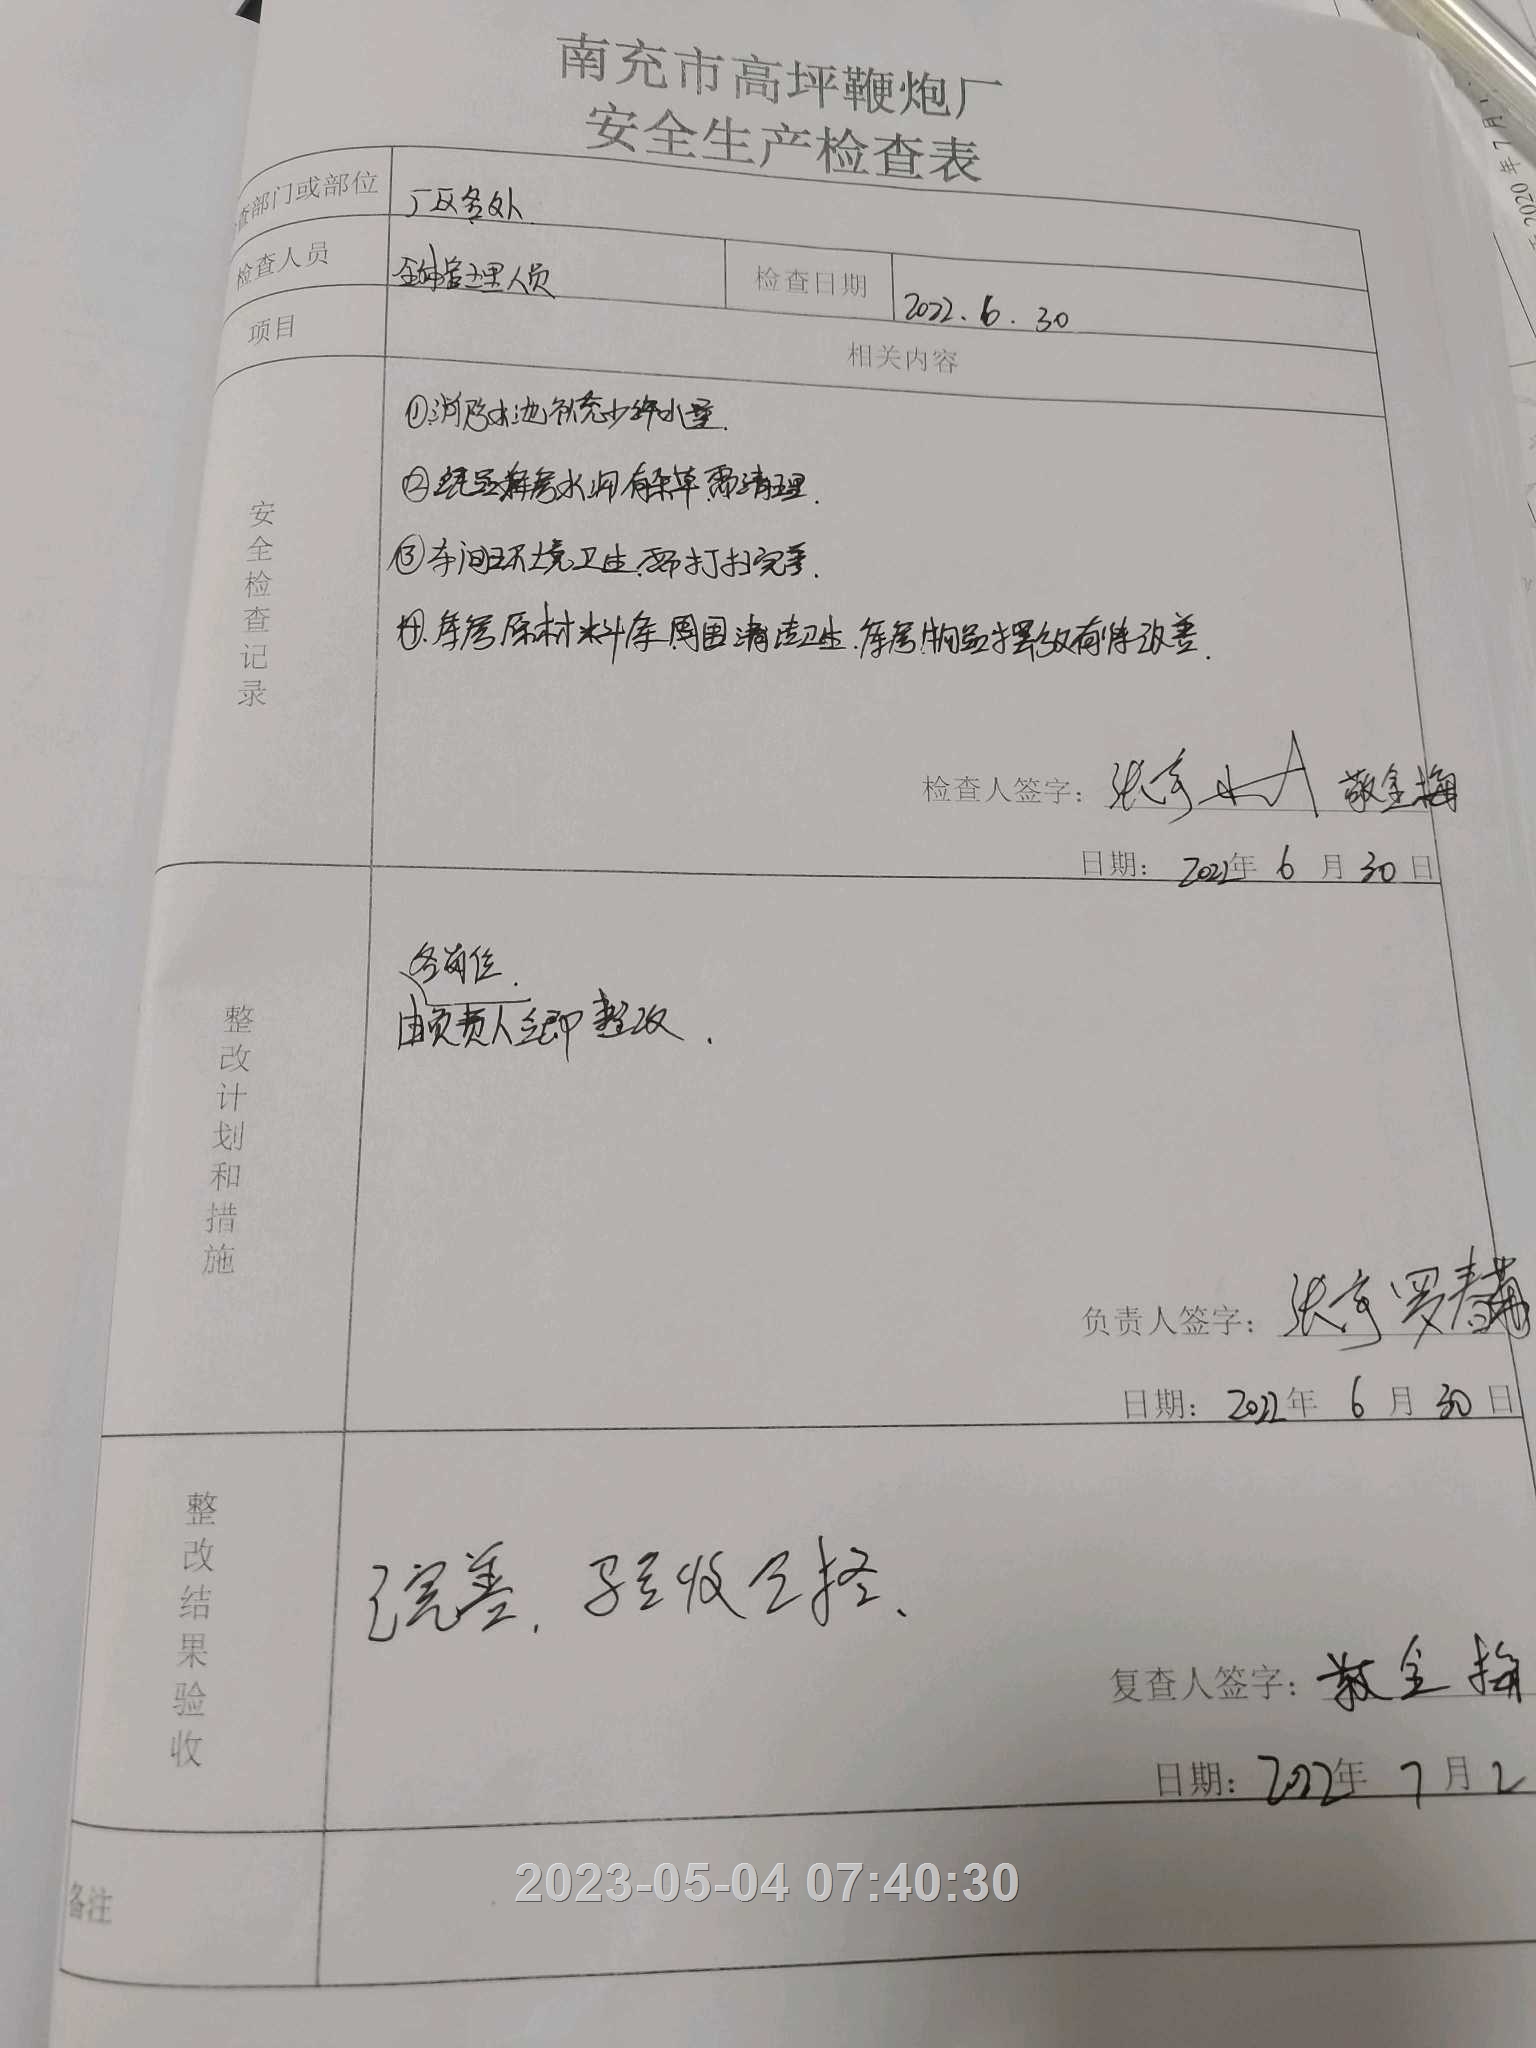 南充市高坪鞭炮厂
安全生产检查表
查部门或部位 厂区各处
检查人员 全体管理人员 检查日期 2022.6.30
项目 相关内容
安全检查记录
①消防水池补充少许水量.
②成品库房水沟有杂草需清理.
③车间环境卫生需打扫完善.
④.库房原材料库周围清洁卫生.库房物品摆放有待改善.
检查人签字: 张 敬金梅
日期: 2022年 6 月 30 日
整改计划和措施
各岗位.
由负责人立即整改.
负责人签字: 张 罗春
日期: 2022年 6 月 30 日
整改结果验收
已完善.验收合格.
复查人签字: 敬金梅
日期: 2022年 7 月 2
备注
2023-05-04 07:40:30
2020年7月